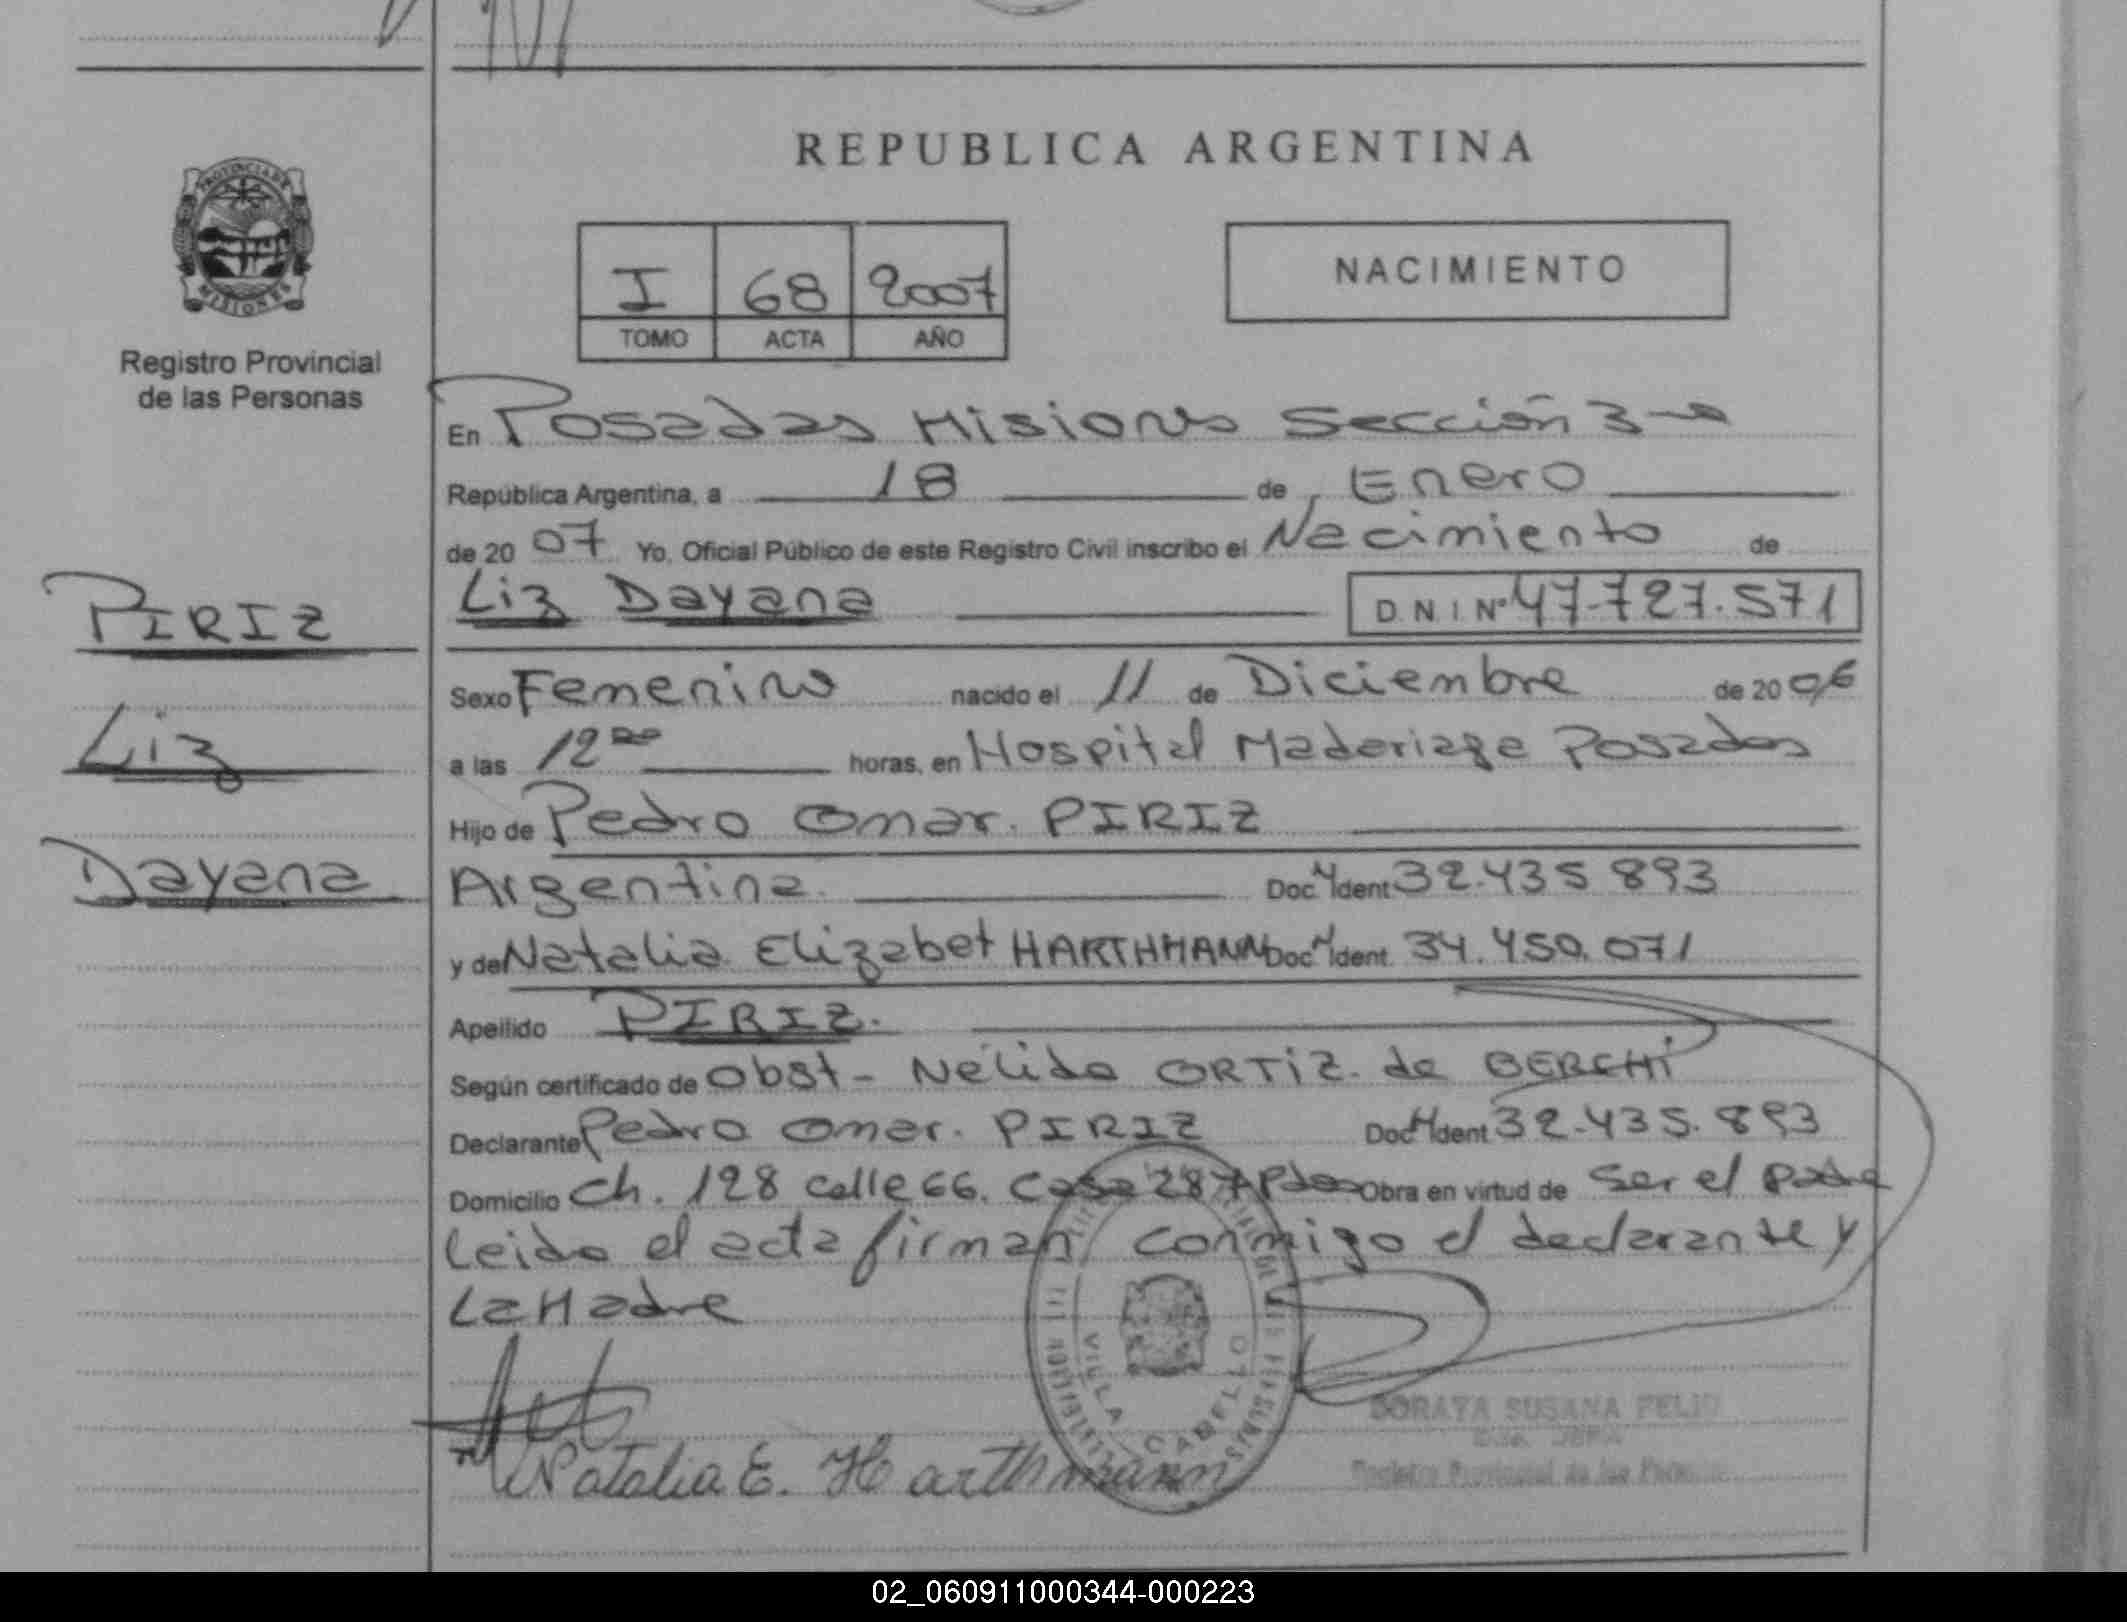 REPUBLICA ARGENTINA
PROVINCIA DE
MISIONES
I 68 2007
TOMO ACTA AÑO
NACIMIENTO
Registro Provincial
de las Personas
En Posadas Misiones Sección 3
República Argentina, a 18 de Enero
de 2007 Yo, Oficial Público de este Registro Civil inscribo el Nacimiento de
PIRIZ
Liz Dayana D.N.I Nº 47.727.571
Sexo Femenino nacido el 11 de Diciembre de 2006
Liz
a las 12 horas, en Hospital Madariaga Posadas
Hijo de Pedro Omar. PIRIZ
Dayana
Argentina. Doc. Ident. 32.435 893
y de Natalia Elizabet HARTHMANN Doc. Ident. 34.450.071
Apellido PIRIZ.
Según certificado de Obst- Nélida ORTIZ. de BERCHI
Declarante Pedro Omar. PIRIZ Doc. Ident 32.435.893
Domicilio Ch. 128 calle 66. Casa 287 Pdas Obra en virtud de Ser el padre
Leida el acta firman conmigo el declarante y
La Madre
VILLA CABELLO
Natalia E. Harthmann
SORAYA SUSANA FELIU
Registro Provincial de las Personas
02_060911000344-000223